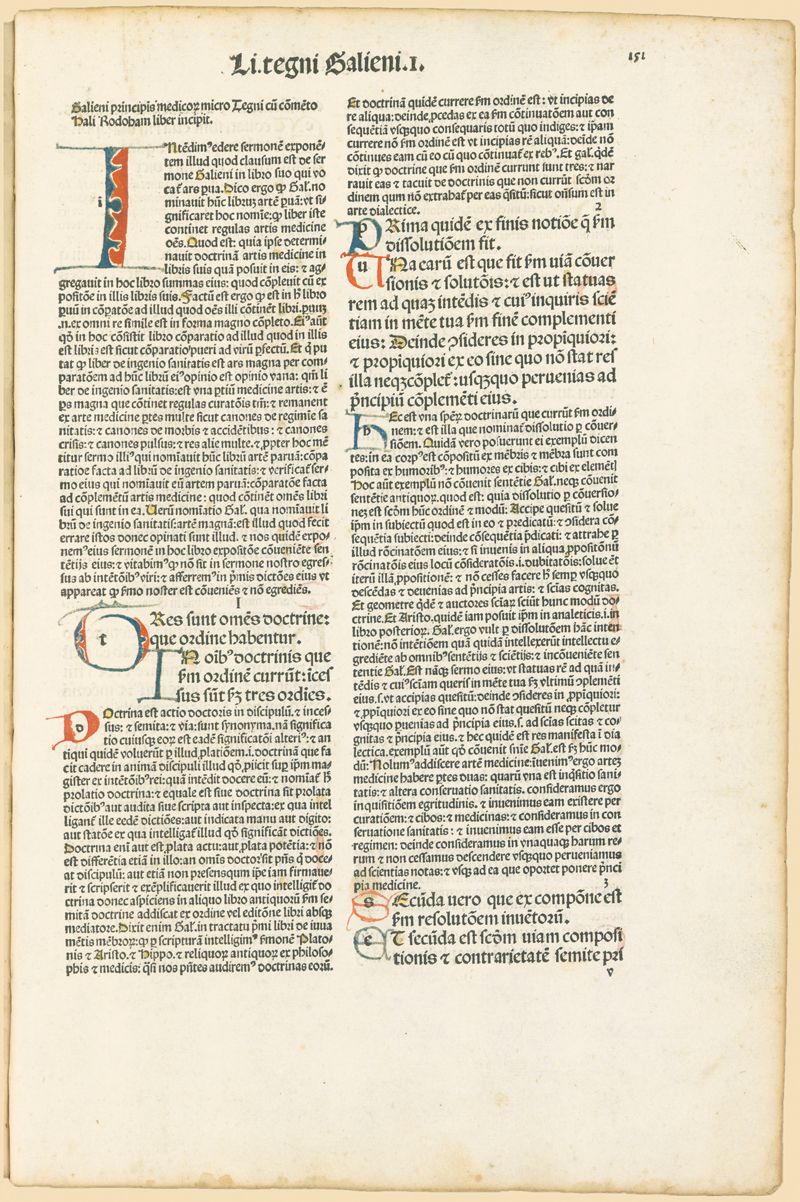 Li.tegni Galieni.i.
151
Galieni principis medicoꝝ micro Tegni cũ cõmẽto
Hali Rodoham liber incipit.
Ntẽdimꝰ edere sermonẽ exponẽ⸗
tem illud quod clausum est de ser
mone Galieni in libro suo qui vo
i
continet regulas artis medicine
oẽs. Quod est: quia ipse determi⸗
nauit doctrinã artis medicine in
libris suis quã posuit in eis: ⁊ ag⸗
gregauit in hoc libro summas eius: quod cõpleuit cũ ex
positõe in illis libris suis. Factũ est ergo ꝙ est in hͦ libro
tat ꝙ liber de ingenio sanitatis est ars magna per com⸗
paratõem ad hũc librũ eiꝰ opinio est opinio vana: qm̃ li
ber de ingenio sanitatis: est vna ptiũ medicine artis: ⁊ ẽ
ps magna que cõtinet regulas curatõis tm̃: ⁊ remanent
ex arte medicine ptes multe sicut canones de regimĩe sa
nitatis: ⁊ canones de morbis ⁊ accidẽtibus: ⁊ canones
crisis: ⁊ canones pulsus: ⁊ res alie multe. ⁊ ꝓpter hoc mẽ
titur sermo illiꝰ qui nomĩauit hũc librũ artẽ paruã: cõpa
ratioe facta ad librũ de ingenio sanitatis: ⁊ verificat̃ ser⸗
mo eius qui nomĩauit eũ artem paruã: cõparatõe facta
ad cõplemẽtũ artis medicine: quod cõtinẽt omẽs libri
sui qui sunt in ea. Uerũ nomĩatio Gal. qua nomĩauit li
brũ de ingenio sanitatis: artẽ magnã: est illud quod fecit
errare istos donec opinati sunt illud. ⁊ nos quidẽ expo⸗
nemꝰ eius sermonẽ in hoc libro expositõe cõueniẽte sen
tẽtijs eius: ⁊ vitabimꝰ ꝙ nõ sit in sermone nostro egres⸗
sus ab intẽtõibꝰ viri: ⁊ afferremꝰ in pͥnis dictões eius vt
appareat ꝙ ẜmo noster est cõueniẽs ⁊ nõ egrediẽs.
I
t
Res sunt omẽs doctrine:
que ordine habentur.
N oĩbꝰ doctrinis que
ẜm ordinẽ currũt: ĩces
sus sũt ẜꝫ tres ordĩes.
D
Octrina est actio doctoris in discipulũ. ⁊ inces⸗
sus: ⁊ semita: ⁊ via: sunt synonyma. nã significa
tio cuiusqꝫ eoꝝ est eadẽ significatõi alteriꝰ: ⁊ an
tiqui quidẽ voluerũt ꝑ illud ꝓlatiõem. i. doctrinã que fa
cit cadere in animã discipuli illud qd̃ ꝓijcit suꝑ ip̃m ma⸗
gister ex intẽtõibꝰ rei: quã intẽdit docere eũ: ⁊ nomĩat̃ hͦ
prolatio doctrina: ⁊ equale est siue doctrina sit prolata
dictõibꝰ aut audita siue scripta aut inspecta: ex qua intel
ligant̃ ille eedẽ dictiões: aut indicata manu aut digito:
aut statõe ex qua intelligat̃ illud qd̃ significãt dictiões.
Doctrina eni3 aut est ꝓlata actu: aut ꝓlata potẽtia: ⁊ nõ
est differẽtia etiã in illo: an omĩs doctor sit pñs q̃ doce⸗
at discipulũ: aut etiã non presens qm̃ ip̃e iam firmaue⸗
rit ⁊ scripserit ⁊ exẽplificauerit illud ex quo intelligit̃ do
ctrina donec aspiciens in aliquo libro antiquorũ ẜm se⸗
mitã doctrine addiscat ex ordine vel editõne libri absqꝫ
mediatore. Dixit enim Gal. in tractatu pͥmi libri de iuua
mẽtis mẽbroꝝ: ꝙ ꝑ scripturã intelligimꝰ ẜmonẽ Plato⸗
nis ⁊ Aristo. ⁊ Hippo. ⁊ reliquoꝝ antiquoꝝ ex philoso⸗
phis ⁊ medicis: q̃si nos pñtes audiremꝰ doctrinas eorũ.
Et doctrinã quidẽ currere ẜm ordinẽ est: vt incipias de
re aliqua: deinde ꝓcedas ex ea ẜm cõtinuatõem aut con
sequẽtiã vsqꝫquo consequaris totũ quo indiges: ⁊ ip̃am
currere nõ ẜm ordinẽ est vt incipias rẽ aliquã: deĩde nõ
cõtinues eam cũ eo cũ quo cõtinuat̃ ex rebꝰ. Et gal. qd̃ẽ
dixit ꝙ doctrine que ẜm ordinẽ currunt sunt tres: ⁊ nar
rauit eas ⁊ tacuit de doctrinis que non currũt scõm or
dinem qum nõ extrahat̃ per eas q̃situ: sicut oñsum est in
arte dialectice.
2
p
Rima quidẽ ex finis notiõe q̃ ẜm
dissolutiõem fit.
u
Na earũ est que fit ẜm uiã cõuer
sionis ⁊ solutõis: ⁊ est ut statuas
rem ad quaꝫ intẽdis ⁊ cuiꝰ inquiris sciẽ
tiam in mẽte tua ẜm finẽ complementi
eius: Deinde ↄsideres in propĩquiori:
⁊ propiquiori ex eo sine quo nõ stat res
illa neqꝫ cõplet̃: usqꝫquo peruenias ad
pͥncipiũ cõplemẽti eius.
h
Ec est vna speꝝ doctrinarũ que currũt ẜm ordi⸗
nem: ⁊ est illa que nominat̃ dissolutio ꝑ cõuer⸗
siõem. Quidã vero posuerunt ei exemplũ dicen
tes: in ea corpꝰ est cõpositũ ex mẽbris ⁊ mẽbra sunt com
posita ex humoribꝰ: ⁊ humores ex cibis: ⁊ cibi ex elemẽt
Hoc aũt exemplũ nõ cõuenit sentẽtie Gal. neqꝫ cõuenit
sentẽtie antiquoꝝ. quod est: quia dissolutio ꝑ cõuersio⸗
neꝫ est scõm hũc ordinẽ ⁊ modũ: Accipe quesitũ ⁊ solue
ip̃m in subiectũ quod est in eo ⁊ predicatũ: ⁊ ↄsidera cõ⸗
sequẽtia subiecti: deinde cõsequẽtia p̃dicati: ⁊ attrahe ꝑ
illud rõcinatõem eius: ⁊ si inuenis in aliqua ꝓpositõnũ
rõcinatõis eius locũ cõsideratõis. i. dubitatõis: solue et
iterũ illã ꝓpositionẽ: ⁊ nõ cesses facere hͦ semꝑ vsqꝫquo
descẽdas ⁊ deuenias ad pͥncipia artis: ⁊ scias cognitas.
Et geometre qd̃ẽ ⁊ auctores sciaꝝ sciũt hunc modũ do⸗
ctrine. Et Aristo. quidẽ iam posuit ip̃m in analeticis. i. in
libro posterioꝝ. Gal. ergo vult ꝑ dissolutõem hãc inten
tionẽ: nõ intẽtiõem quã quidã intellexerũt intellectu e⸗
grediẽte ab omnibꝰ sentẽtijs ⁊ sciẽtijs: ⁊ incõueniẽte sen
tentie Gal. Est nãqꝫ sermo eius: vt statuas rẽ ad quã in⸗
tẽdis ⁊ cuiꝰ sciam queris in mẽte tua ẜꝫ vltimũ ↄplementi
eius. s. vt accipias quesitũ: deinde ↄsideres in ꝓpĩquiori:
⁊ ꝓpiquiori ex eo sine quo nõ stat quesitũ neqꝫ cõpletur
vsqꝫquo ꝑuenias ad pͥncipia eius. s. ad scias scitas ⁊ co⸗
gnitas ⁊ pͥncipia eius. ⁊ hec quidẽ est res manifesta ĩ dia
lectica. exemplũ aũt qd̃ cõuenit sñie Gal. est ẜꝫ hũc mo⸗
dũ: Nolumꝰ addiscere artẽ medicine: ĩuenimꝰ ergo arteꝫ
medicine habere ptes duas: quarũ vna est inq̃sitio sani⸗
tatis: ⁊ altera conseruatio sanitatis. consideramus ergo
inquisitiõem egritudinis. ⁊ inuenimus eam existere per
curatiõem: ⁊ cibos: ⁊ medicinas: ⁊ consideramus in con
seruatione sanitatis: ⁊ inuenimus eam esse per cibos et
regimen: deinde consideramus in vnaquaqꝫ harum re⸗
rum ⁊ non cessamus descendere vsqꝫquo perueniamus
ad scientias notas: ⁊ vsqꝫ ad ea que oportet ponere pͥnci
pia medicine.
3
s
Ecũda uero que ex compõne est
ẜm resolutõem inuẽtorũ.
e
T secũda est scõm uiam composi
tionis ⁊ contrarietatẽ semite pri
v